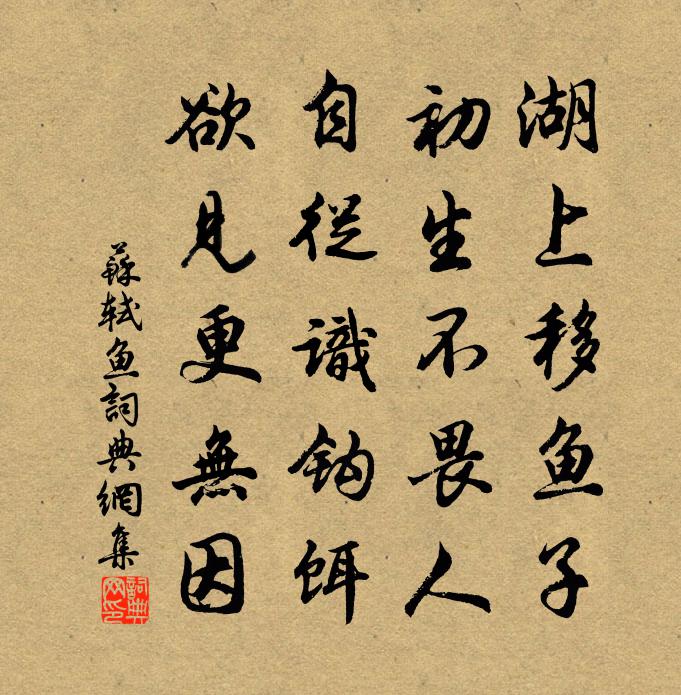 湖上移鱼子
初生不畏人
自從識鈎餌
欲見更無因
蘇軾鱼詞典網集
詞典网印